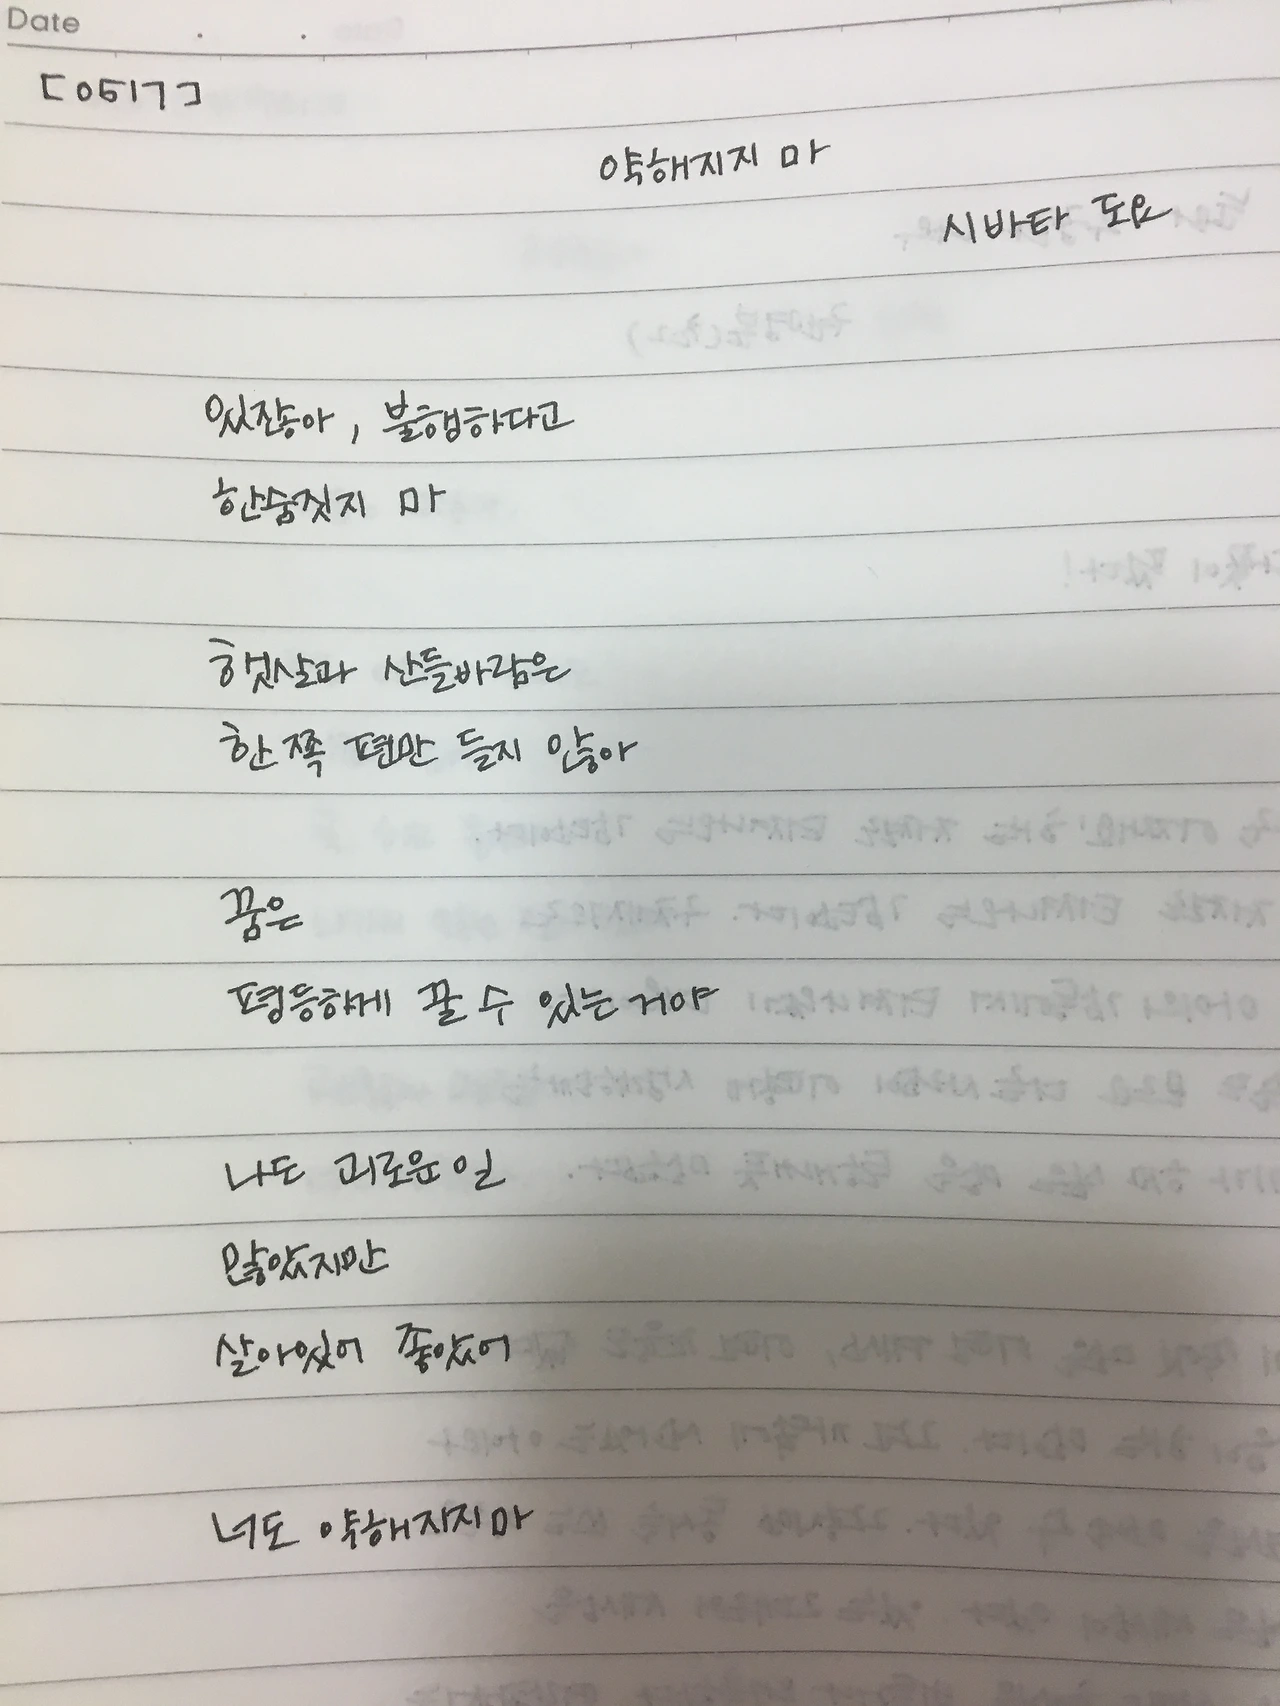 Date . .
[0517]
약해지지 마
시바타 도요
있잖아, 불행하다고
한숨짓지 마
햇살과 산들바람은
한 쪽 편만 들지 않아
꿈은
평등하게 꿀 수 있는 거야
나도 괴로운 일
많았지만
살아있어 좋았어
너도 약해지지 마